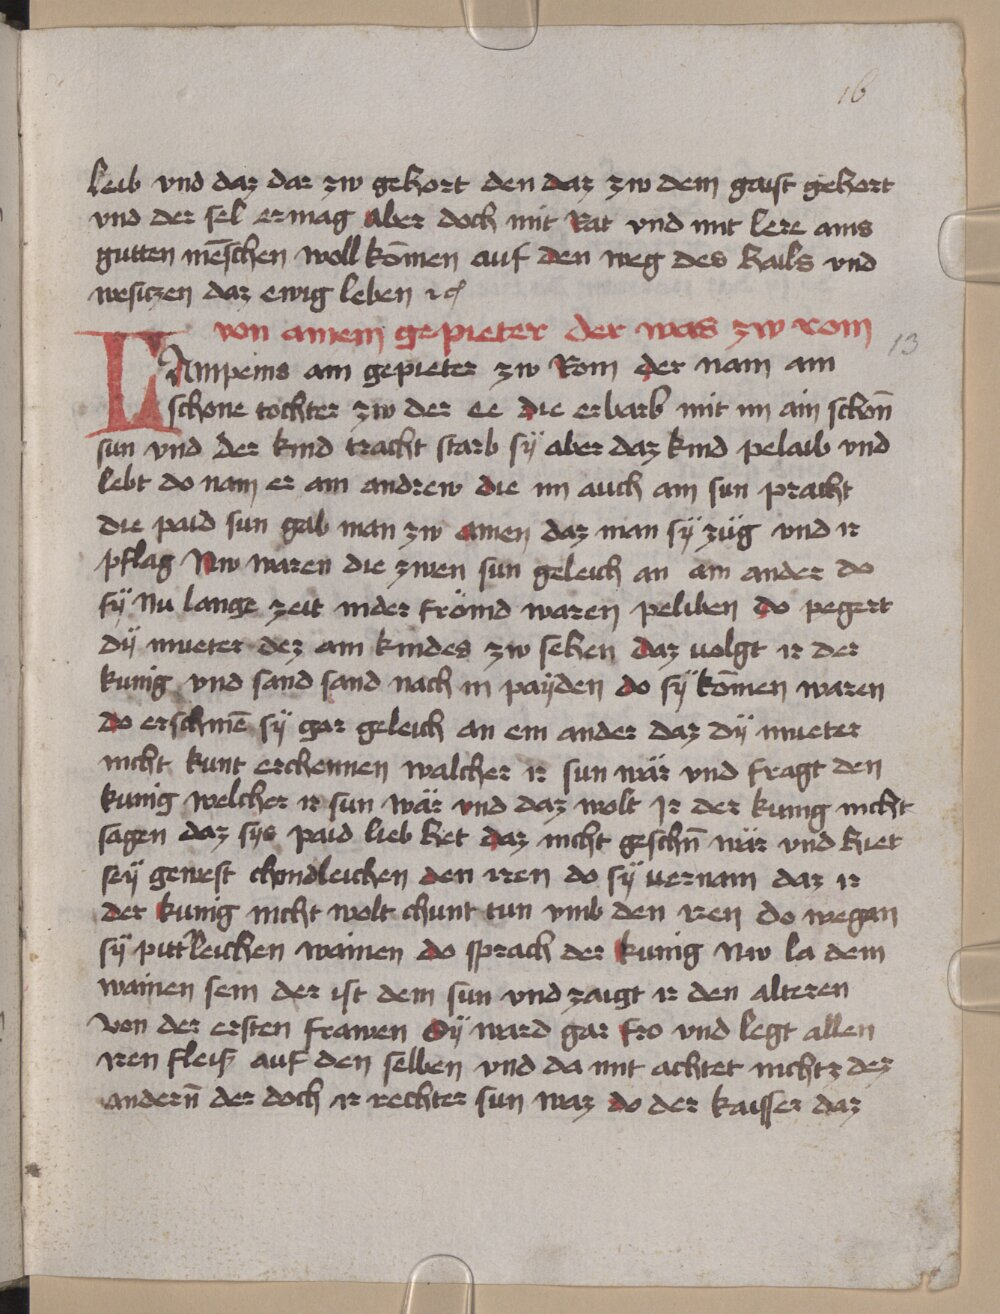 16
leib vnd daz dar zw gehort den daz zw dem gaist gehort
vnd der sel ermag aber doch mit Rat vnd mit lere ains
gutten mēschen woll kōmen auf den weg des hails vnd
wesitzen daz ewig leben ꝛc
von ainem gepieter der was zw rom 13
LAmpeius ain gepieter zw Rom der nam ain
schone tochter zw der ee die erbarb mit im ain schon̄
sun vnd der kind tracht starb sÿ aber daz kind pelaib vnd
lebt do nam er ain andrew die im auch ain sun pracht
die paid sun gab man zw ainen daz man sÿ züg vnd ir
pflag Nw waren die zwen sun geleich an ain ander do
sÿ Nu lange zeit in der frömd waren peliben do pegert
dÿ mueter dez ain kindes zw sehen daz volgt ir der
kunig vnd sand sand nach in paÿden do sÿ kōmen waren
do erschinē sÿ gar geleich an ein ander daz dÿ mueter
nicht kunt erchennen walcher ir sun wär vnd fragt den
kunig welcher ir sun wär vnd daz wolt Ir der kunig nicht
sagen daz sys paid lieb het daz nicht geschn̄ wär vnd hiet
seÿ gewest chondleichen den iren do sÿ vernam daz ir
der kunig nicht wolt chunt tun vmb den iren do wegan
sÿ pittleichen wainen do sprach der kunig Nw la dein
wainen sein der ist dein sun vnd zaigt ir den alteren
von der ersten frawen dÿ ward gar fro vnd legt allen
iren fleiß auf den selben vnd da mit achtet nichtz dez
andern̄ der doch ir rechter sun waz do der kaisser daz